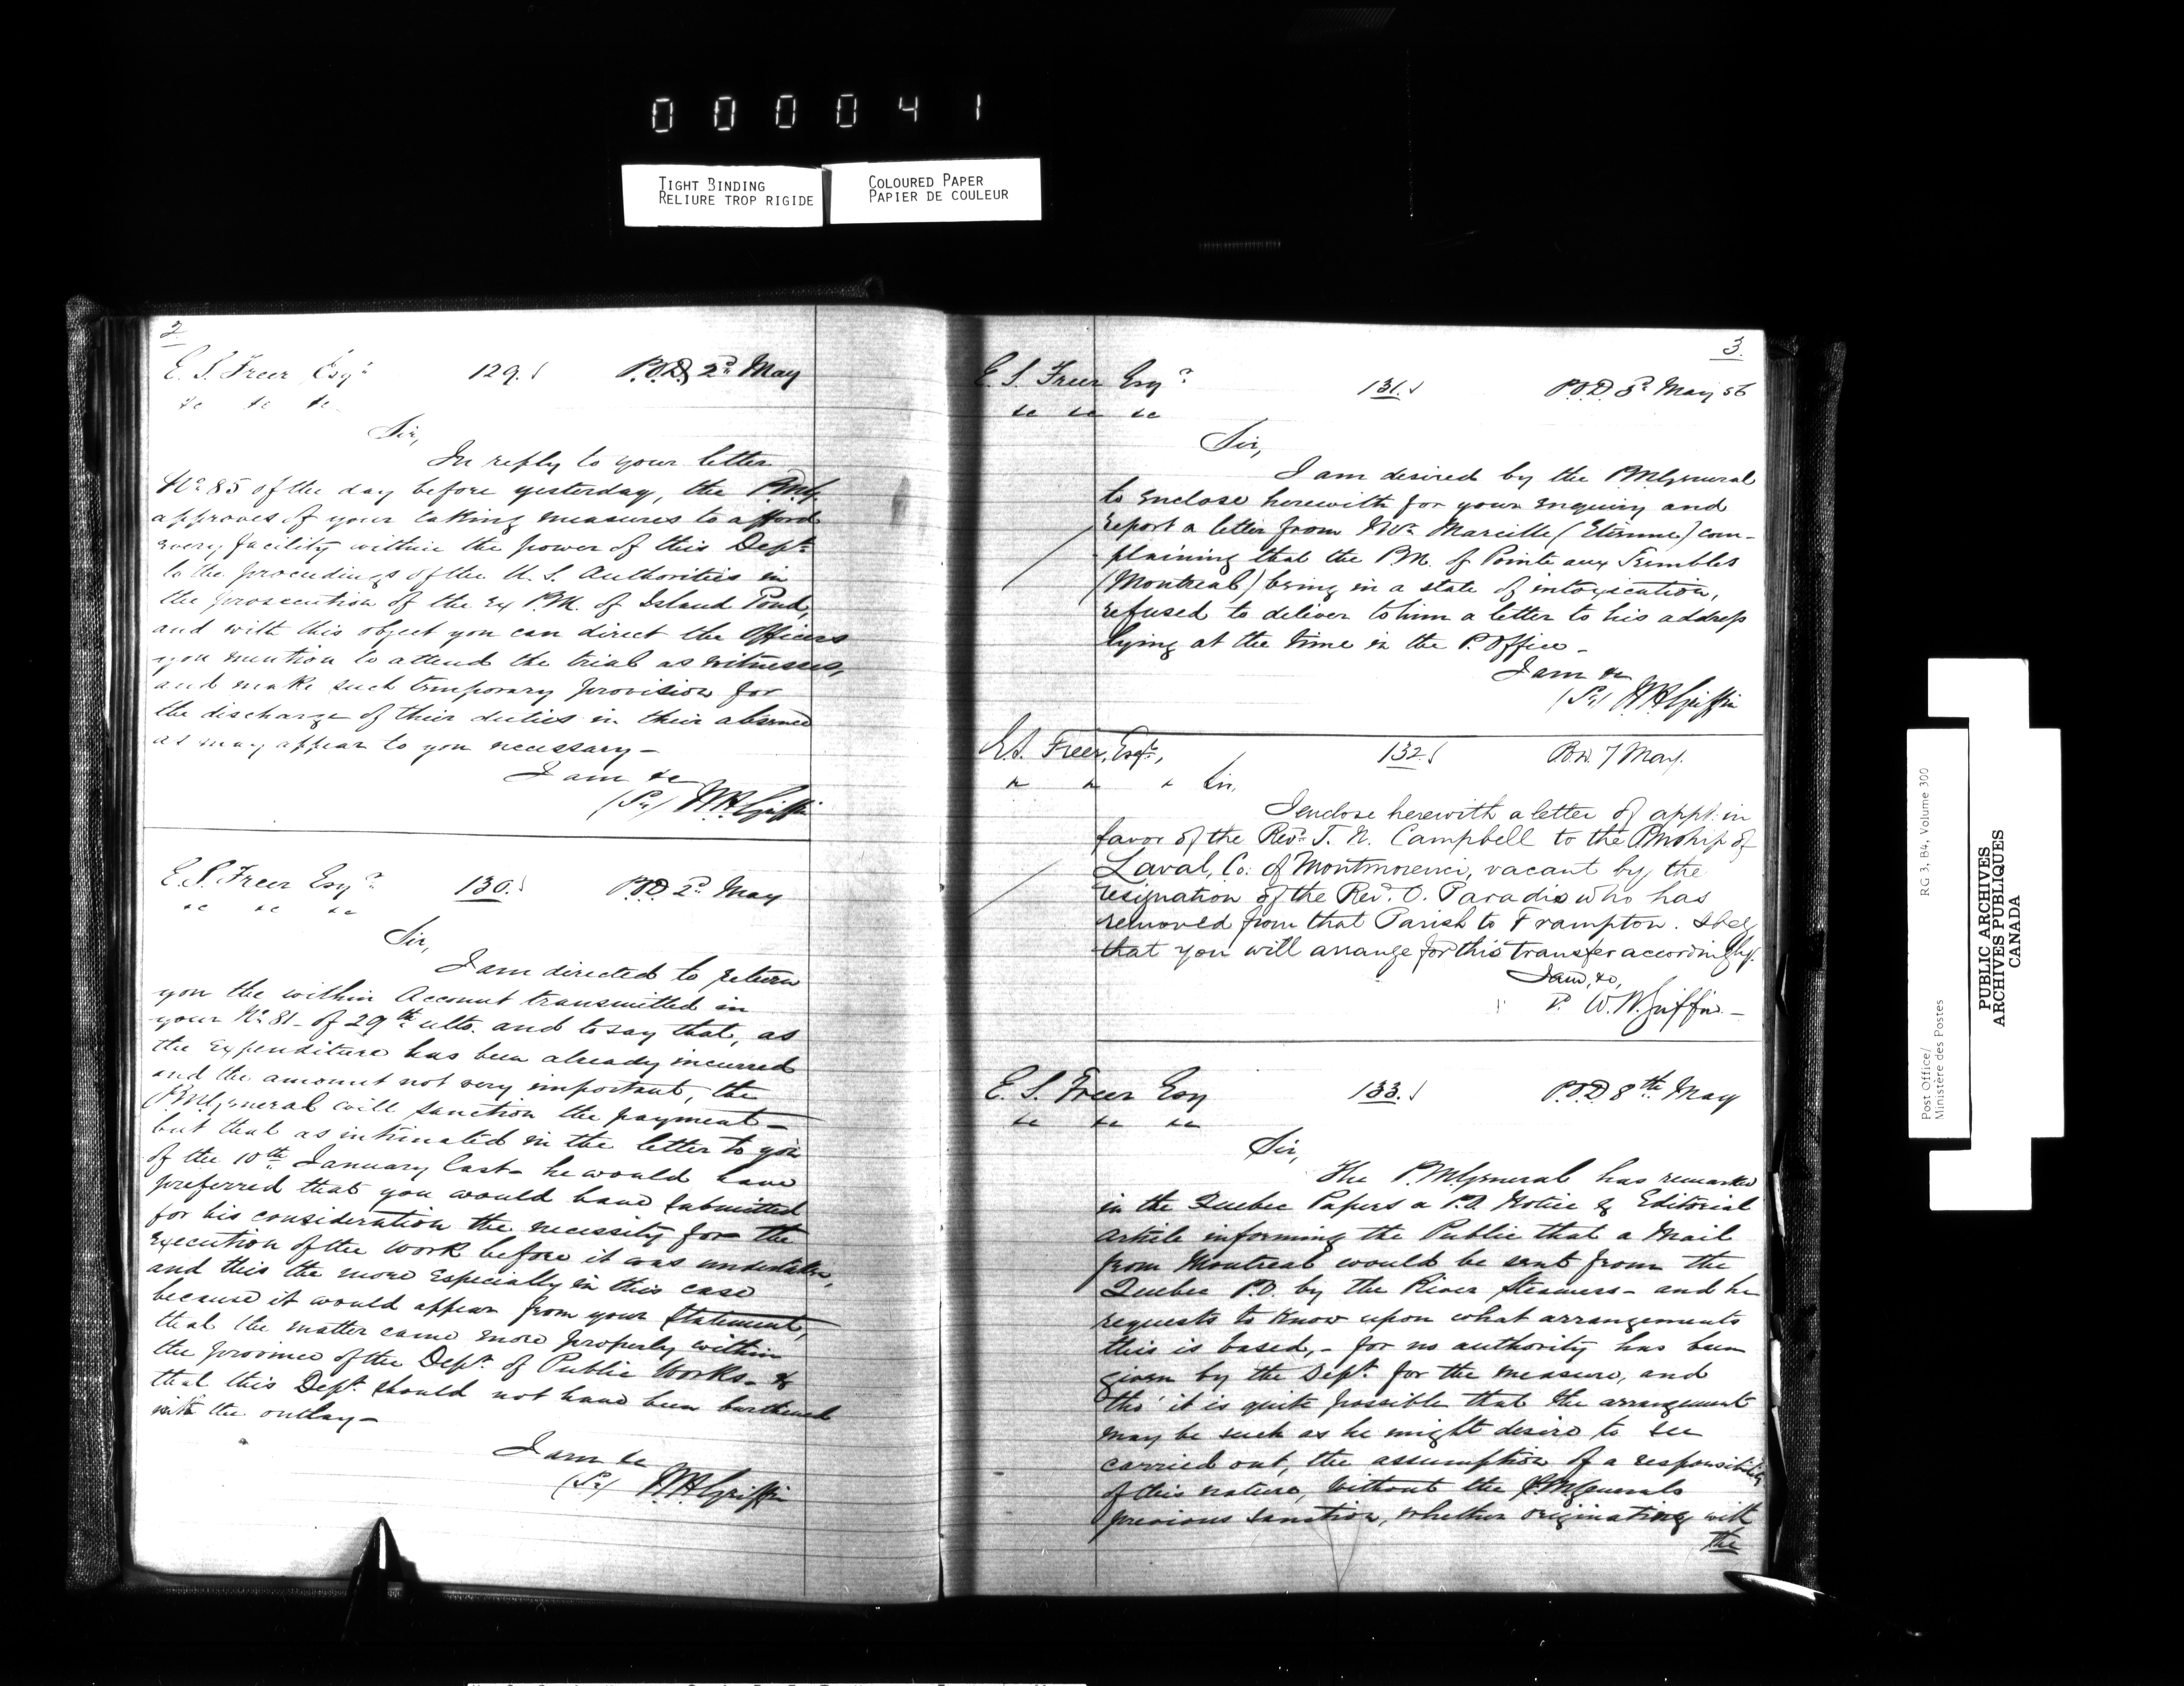 000041
TIGHT BINDING
RELIURE TROP RIGIDE
COLOURED PAPER
PAPIER DE COULEUR
2
E. S. Freer Esqr 129. P.O.D. 2d May
&c &c &c
Sir,
In reply to your letter
No 85 of the day before yesterday, the P.M.G.
approves of your taking measures to afford
every facility within the power of this Dept
to the proceedings of the U.S. Authorities in
the prosecution of the Ex P.M. of Island Pond,
and with this object you can direct the Officers
you mention to attend the trial as witnesses,
and make such temporary provision for
the discharge of their duties in their absence
as may appear to you necessary—
I am &c
(Sd) W.H. Griffin
E. S. Freer Esqr 130. P.O.D. 2d May
&c &c &c
Sir,
I am directed to return
you the within Account transmitted in
your No 81- of 29th ulto. and to say that, as
the Expenditure has been already incurred
and the amount not very important, the
P.M.General will sanction the payment—
but that as intimated in the letter to you
of the 10th January last- he would have
preferred that you would have submitted
for his consideration the necessity for the
execution of the work before it was undertaken,
and this the more Especially in this case
because it would appear from your Statement,
that the matter came more properly within
the province of the Dept. of Public Works- &
that this Dept. should not have been burthened
with the outlay—
I am &c
(Sd) W.H. Griffin
3.
E. S. Freer Esqr 131. P.O.D. 3d May 56
&c &c &c
Sir,
I am desired by the P.M.General
to Enclose herewith for your Enquiry and
Report a letter from Mr. Marcille (Etienne) com-
plaining that the P.M. of Pointe aux Trembles
(Montreal) being in a state of intoxication,
refused to deliver to him a letter to his address
lying at the time in the P. Office-
I am &c
(Sd) W.H. Griffin
E.S. Freer, Esqr., 132. P.O.D. 7 May.
" " " Sir,
I enclose herewith a letter of appt. in
favor of the Revd. T. N. Campbell to the Pmship of
Laval, Co. of Montmorenci, vacant by the
resignation of the Rev. O. Paradis who has
removed from that Parish to Frampton. I beg
that you will arrange for this transfer accordingly.
I am, &c,
W.H. Griffin—
E. S. Freer Esq 133. P.O.D 8th. May
&c &c &c
Sir,
The P.M.General has remarked
in the Quebec Papers a P.O. Notice & Editorial
Article informing the Public that a Mail
from Montreal would be sent from the
Quebec P.O. by the River Steamers- and he
requests to know upon what arrangements
this is based,- for no authority has been
given by the Dept. for the measure, and
tho' it is quite possible that the arrangement
may be such as he might desire to see
carried out, the assumption of a responsibility
of this nature, without the P.MGenerals
previous sanction, whether originating with
the
Post Office/ RG 3, B4, Volume 300
Ministère des Postes
PUBLIC ARCHIVES
ARCHIVES PUBLIQUES
CANADA